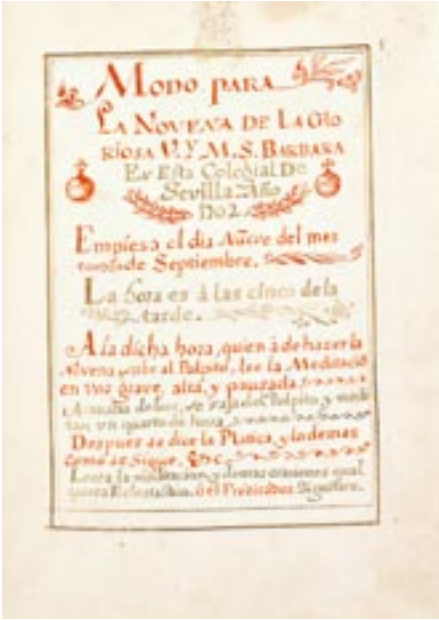 Modo para
La Novena de la Glo
riosa V. y M. S. Barbara
En Esta Colegial De
Sevilla Año
Empiesa el dia Nueve del mes
de Septiembre.
La hora es à las cinco de la
tarde.
A la dicha hora, quien à de hazer la
Novena sube al Pulpito, lee la Meditació
en voz grave, alta, y pausada,
se baja del Pulpito y
tan un quarto de hora,
Despues se dice la Platica, y lo demas
como se Sigue, &c.
Leera la meditacion, y demas oraciones qual
quiera o el Predicador